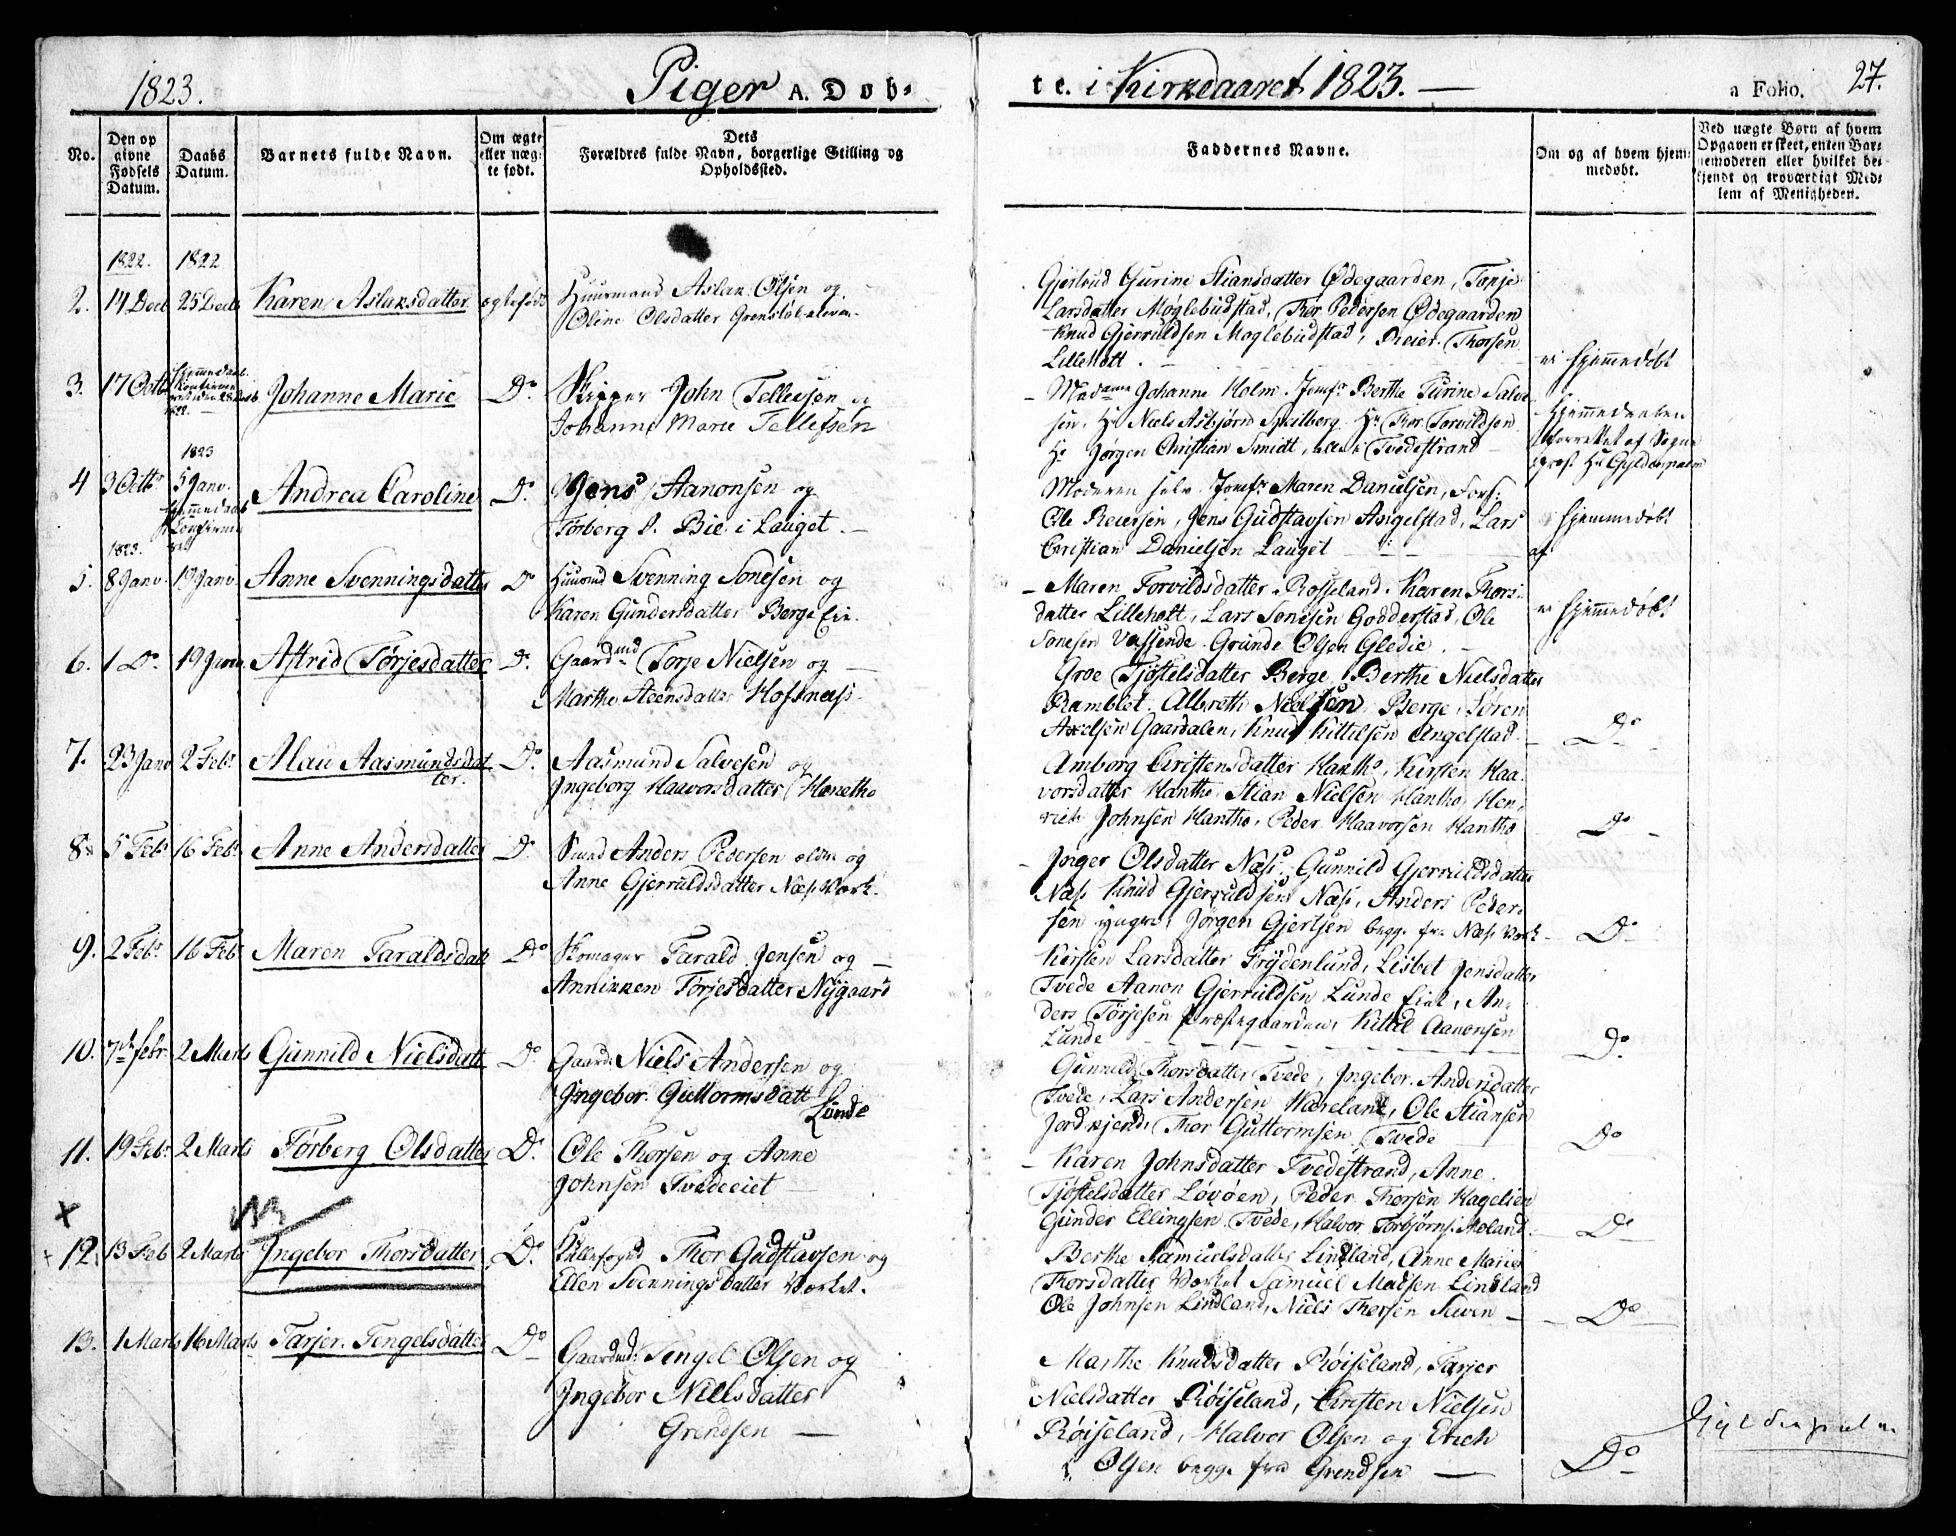 1823.
Piger A. Døb-
te. i Kirkeaaret 1823. —
a Folio. 27.
No.
Den op
givne
Fødsels
Datum.
Daabs
Datum.
Barnets fulde Navn.
Om ægte
eller uæg-
te født.
Dets
Forældres fulde Navn, borgerlige Stilling og
Opholdssted.
Faddernes Navne.
Om og af hvem hjem-
medøbt.
Ved uægte Børn af hvem
Opgaven er skeet, enten Bar-
nemoderen eller hvilket be-
kjendt og troværdigt Med-
lem af Menigheden.
1822. 1822
2. 14 Decb 25 Decb Karen Aslaksdatter ægtefødt Huusmand Aslak Olsen og
Oline Olsdatter
Gjertrud Gurine Stiansdatter Ødegaarden, Tonje
Larsdatter Møglebudstad, Thor Pedersen Ødegaarden
Knud Gjerruldsen Moglebudstad, Reier Thorsen
Lilleholt. — ei hjemmedøbt
3. 17 Octb Hjemmedaab Johanne Marie Do. Skipper John Tellefsen og
Johanne Marie Tellefsen
Madame Johanne Holm. Jomfr Berthe Turine Salve-
sen, Hr Niels Asbjørn Spilberg Hr Thor Torvildsen
Hr Jørgen Christian Smidt, alle i Tvedestrand —
Hjemmedaaben
forrettet af Sogne
præst Hr Gyldenpalm
1823
4 3 Octbr 5 Janv. Andrea Caroline Do. Jens Aanonsen og
Torberg P. Bie i Lauget. —
Moderen selv. Jomfr Maren Danielsen,
Ole Reiersen, Jens Gudstavsen Angelstad, Lars
Christian Danielsen Lauget — hjemmedøbt
1823.
5. 8 Janv. 19 Janv. Anne Svenningsdatter Do Huusmd Svenning Sonesen og
Karen Gundersdatter Berge Eie.
Maren Torvildsdatter Rosseland. Karen Thors-
datter Lilleholt, Lars Sonesen Godderstad, Ole
Sonesen Vassende. Grunde Olsen Gledie. — ei hjemmedøbt
6. 1 Do. 19 Janv. Astrid Torjesdatter Do. Gaardmd Torje Nielsen og —
Marthe Steensdatter Hofsnæss.
Groe Tjøstelsdatter Berge, Berthe Nielsdatter
Ramblet. Albreth Nielsen Berge, Søren
Axelsen Gaardalen, Knud Kittelsen Angelstad. — Do —
7. 23 Janv 2 Febr. Alau Aasmundsdat
ter. Do. Aasmund Salvesen og
Ingeborg Haavorsdatter Hanetho
Amborg Cristensdatter Hantho, Kersten Haa-
vorsdatter Hantho, Stian Nielsen Hantho, Hen-
rich Johnsen Hantho, Peder Haavorsen Hantho — Do —
8. 5 Febr 16 Febr. Anne Andersdatter Do. Smed Anders Pedersen ældre og
Anne Gjerruldsdatter Næss Værk.
Inger Olsdatter Næss, Gunnild Gjerruldsdatter
Næss Knud Gjerruldsen Næss, Anders Peder-
sen yngre, Jørgen Gjertsen begge fra Næss Værk — Do —
9. 2 Febr. 16 Feb Maren Faraldsdatt Do Skomager Farald Jensen og —
Annikken Torjesdatter Nygaard
Kirsten Larsdatter Frydenlund, Lisbet Jensdatter
Tvede Aanon Gjerruldsen Lunde Eiet, An-
ders Torjesen Præstegaarden, Kittel Aanonsen
Lunde — Do.
10. 7de febr. 2 Marts Gunnild Nielsdatt Do. Gaardm. Niels Andersen og
Ingebor. Guttormsdatt
Lunde
Gunnild Thorsdatter Tvede, Ingebor. Andersdatter
Tvede, Lars Andersen Hareland, Ole Stiansen
Jordkjend, Thor Guttormsen Tvede — Do
11. 19 Febr. 2 Marts Torberg Olsdatter Do. Ole Thorsen og Anne
Johnsen Tvedeeiet —
Karen Johnsdatter Tvedestrand, Anne
Tjøstelsdatter Løvøen, Peder Thorsen Hagelien
Gunder Ellingsen Tvede, Halvor Torbjørns. Moland. — Do —
x
12. 13 Feb 2 Marts Ingebor Thorsdatter Do. Kullefoged Thor Gudstavsen og
Ellen Svenningsdatter Værket.
Berthe Samuelsdatter Lindland, Anne Marie
Thorsdatter Værket Samuel Madsen Lindland
Ole Johnsen Lindland, Niels Thorsen Steven — Do —
13. 1 Marts 16 Marts Tarjer. Tengelsdatter Do Gaardmd: Tengel Olsen og
Ingebor Nielsdatter
Grendsen —
Marthe Knudsdatter Røiseland, Tarjer
Nielsdatter Røiseland, Kirsten Nielsen
Røiseland, Halvor Olsen og Erich
Olsen begge fra Grendsen — Do
Gyldenpalm